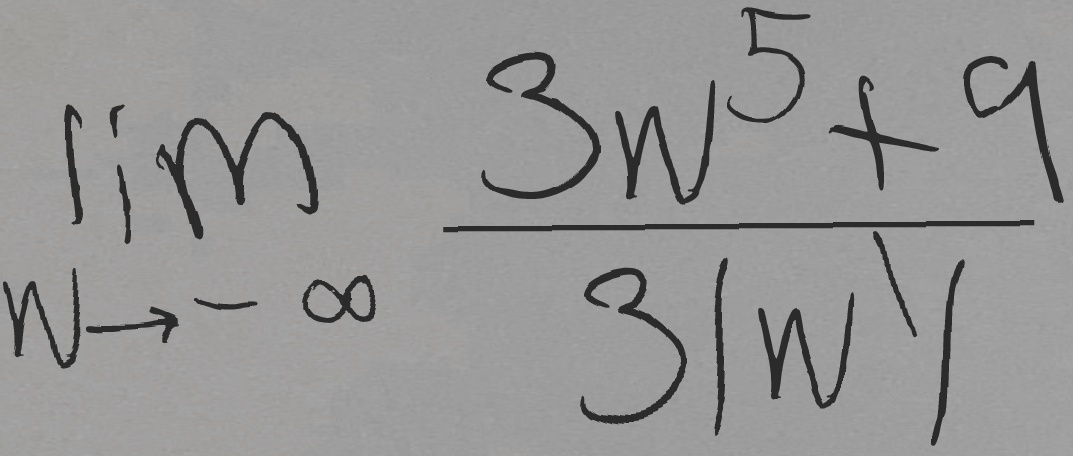 \lim_{w \to -\infty} \frac{3w^5+9}{3|w^1|}